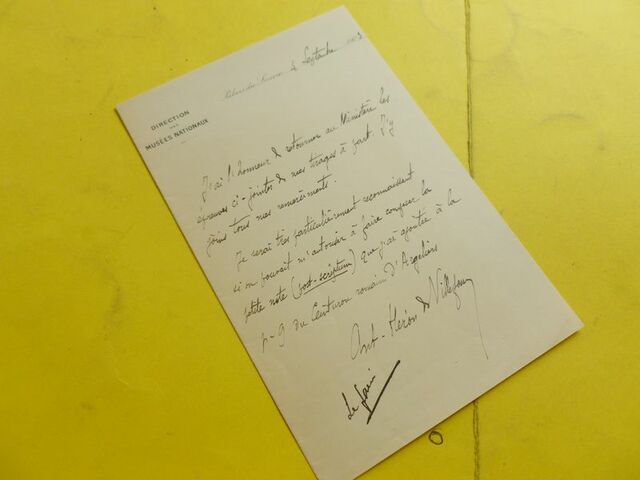 Palais du Louvre le Septembre
DIRECTION
DES
MUSÉES NATIONAUX
J'ai l'honneur de retourner au Ministère les
épreuves ci-jointes de mes tirages à part. J'y
joins tous mes remerciments.
Je serai très particulièrement reconnaissant
si on pouvait m'autoriser à faire composer la
petite note (post-scriptum) que j'ai ajoutée à la
p. 9 du Ceinturon romain d'Argeliers
Ant. Héron de Villefosse
Le faire